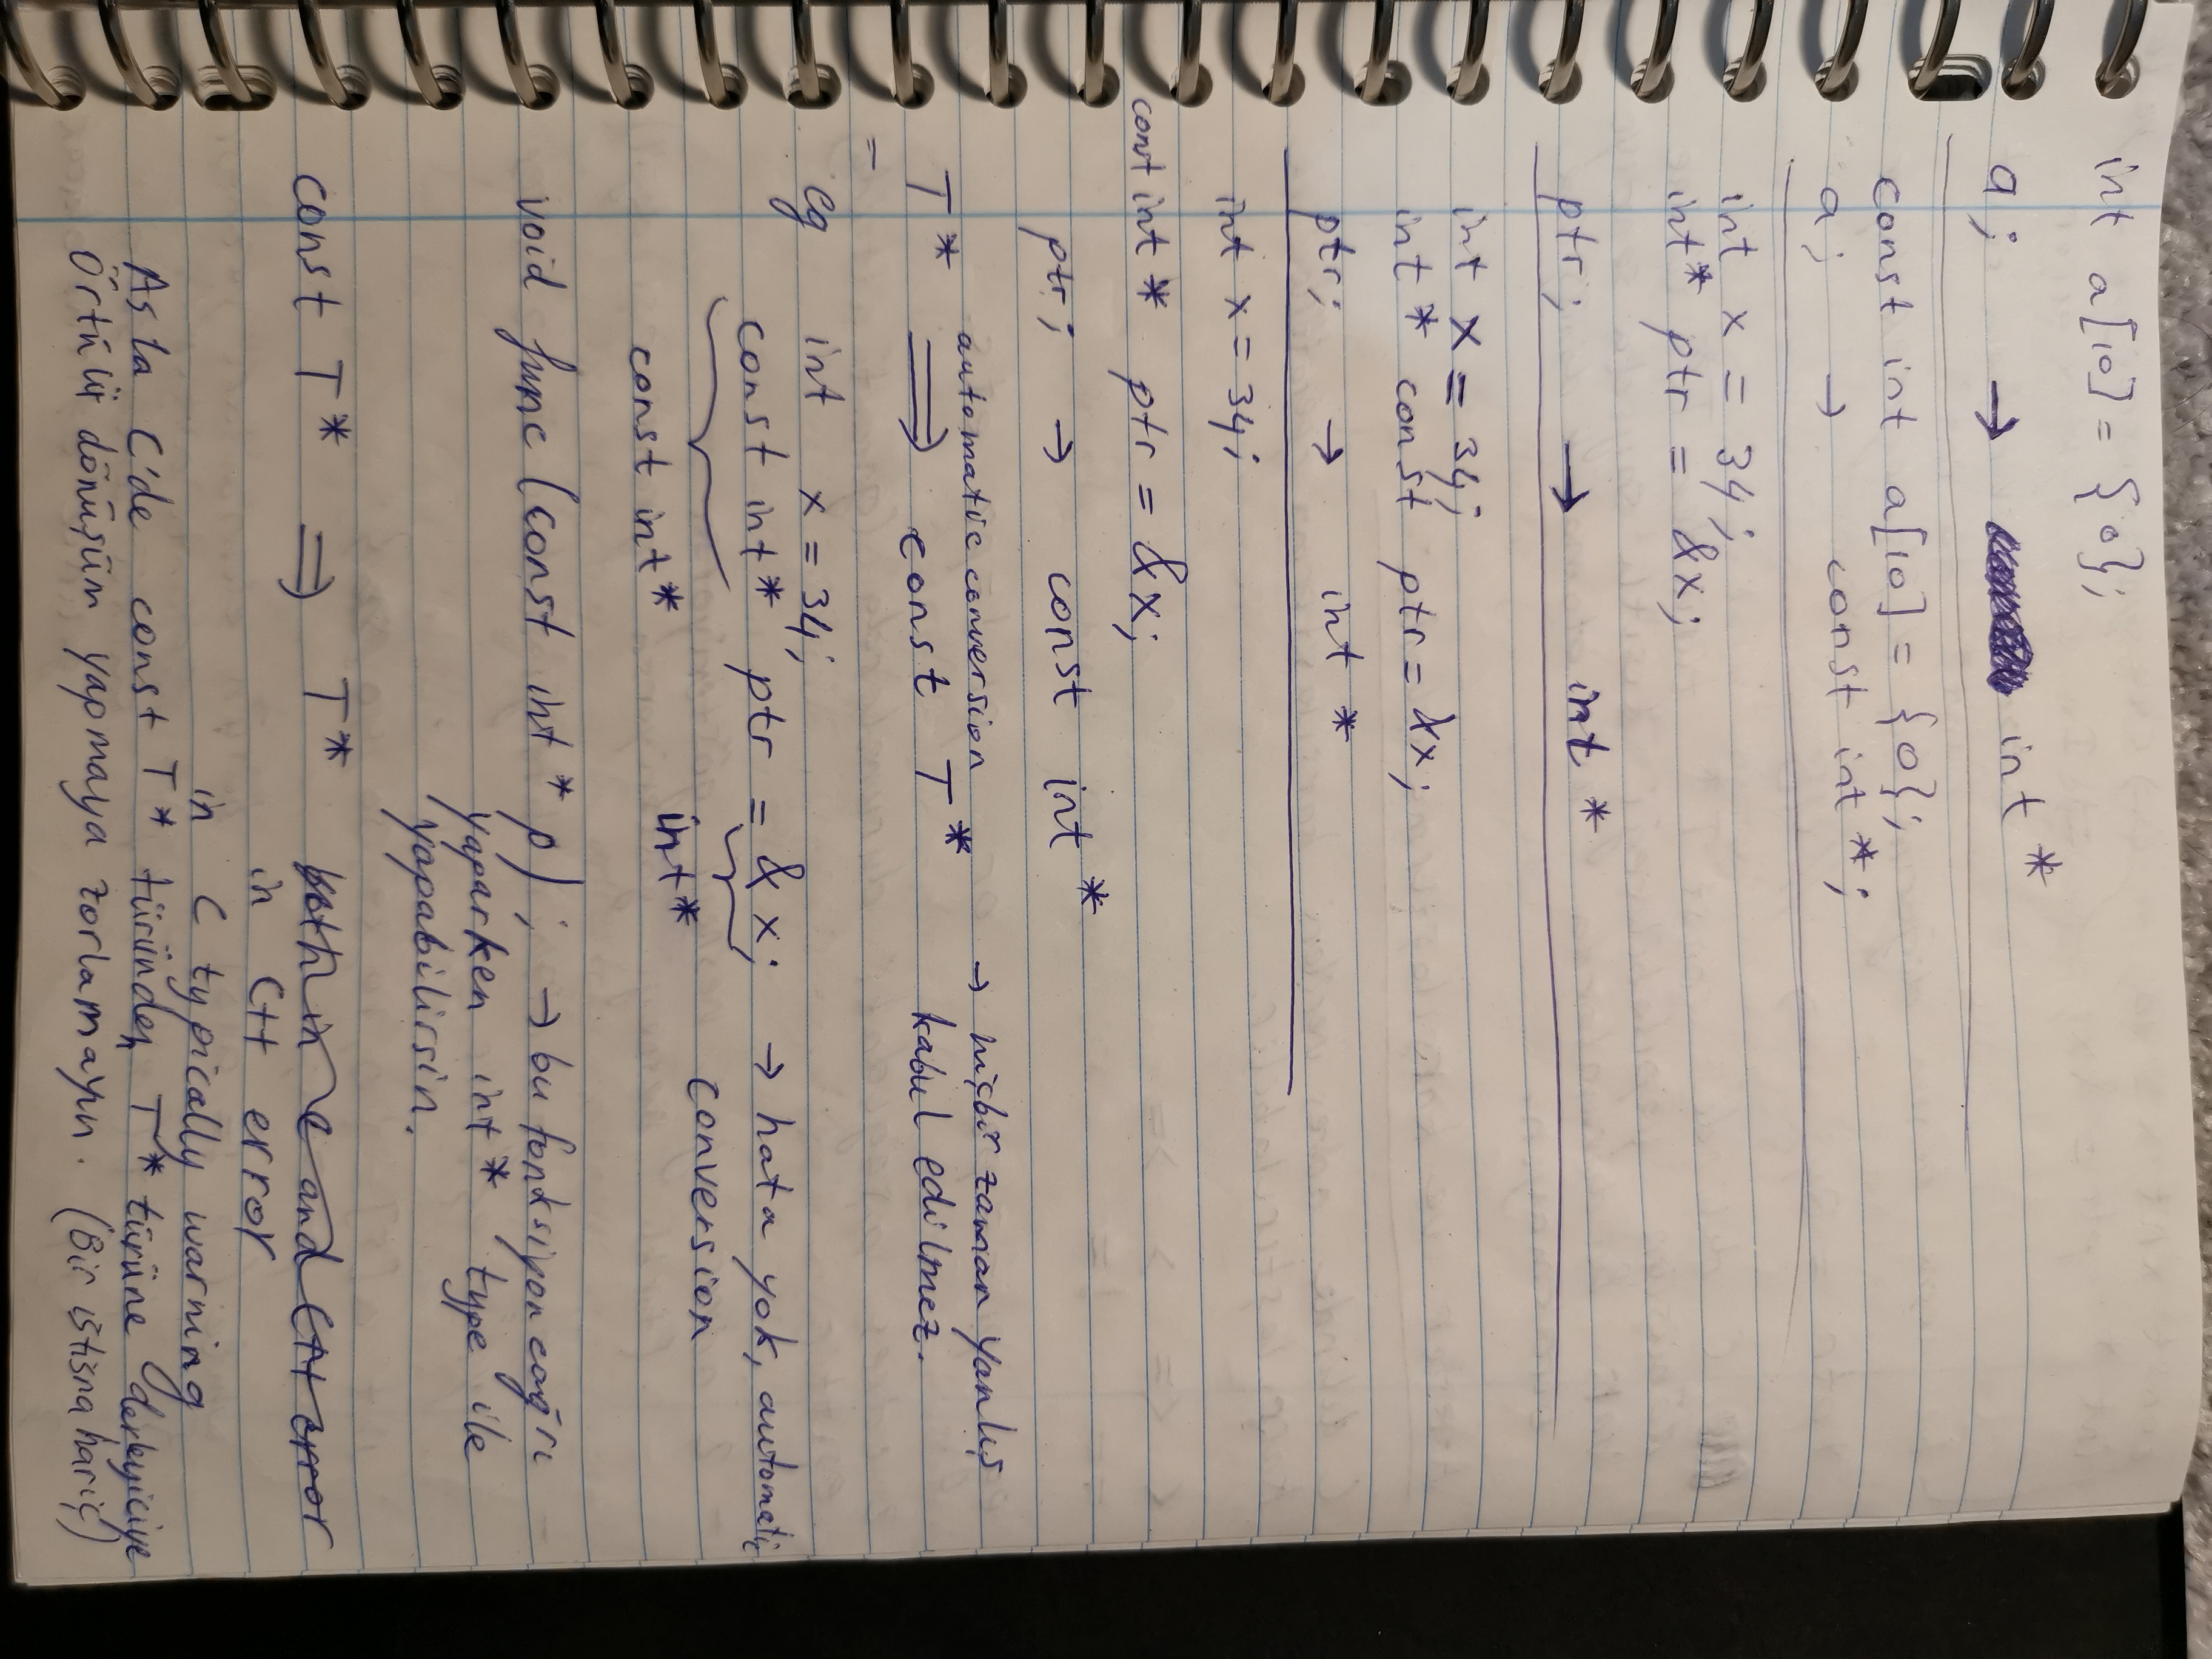 int a[10] = {0};
a; → int *
const int a[10] = {0};
a; → const int *;
int x = 34;
int* ptr = &x;
ptr; → int *
int x = 34;
int * const ptr = &x;
ptr; → int *
int x = 34;
const int * ptr = &x;
ptr; → const int *
automatic conversion → hiçbir zaman yanlış
T * ⟹ const T * kabul edilmez.
eg int x = 34;
const int * ptr = &x; → hata yok, automatic
conversion
const int * int *
void func (const int * p) ; → bu fonksiyon cağrı
yaparken int * type ile
yapabilirsin.
const T * ⟹ T * both in C and C++ error
in C++ error
in C typically warning
Asla C'de const T * türünden T * türüne derleyiciye
Örtülü dönüşüm yapmaya zorlamayın. (Bir iştişna hariç)